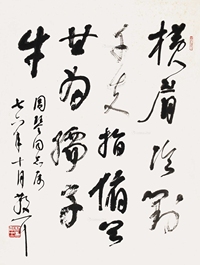 横眉冷對
千夫指俯首
甘为孺子
牛
同志属
七六年十月散耳